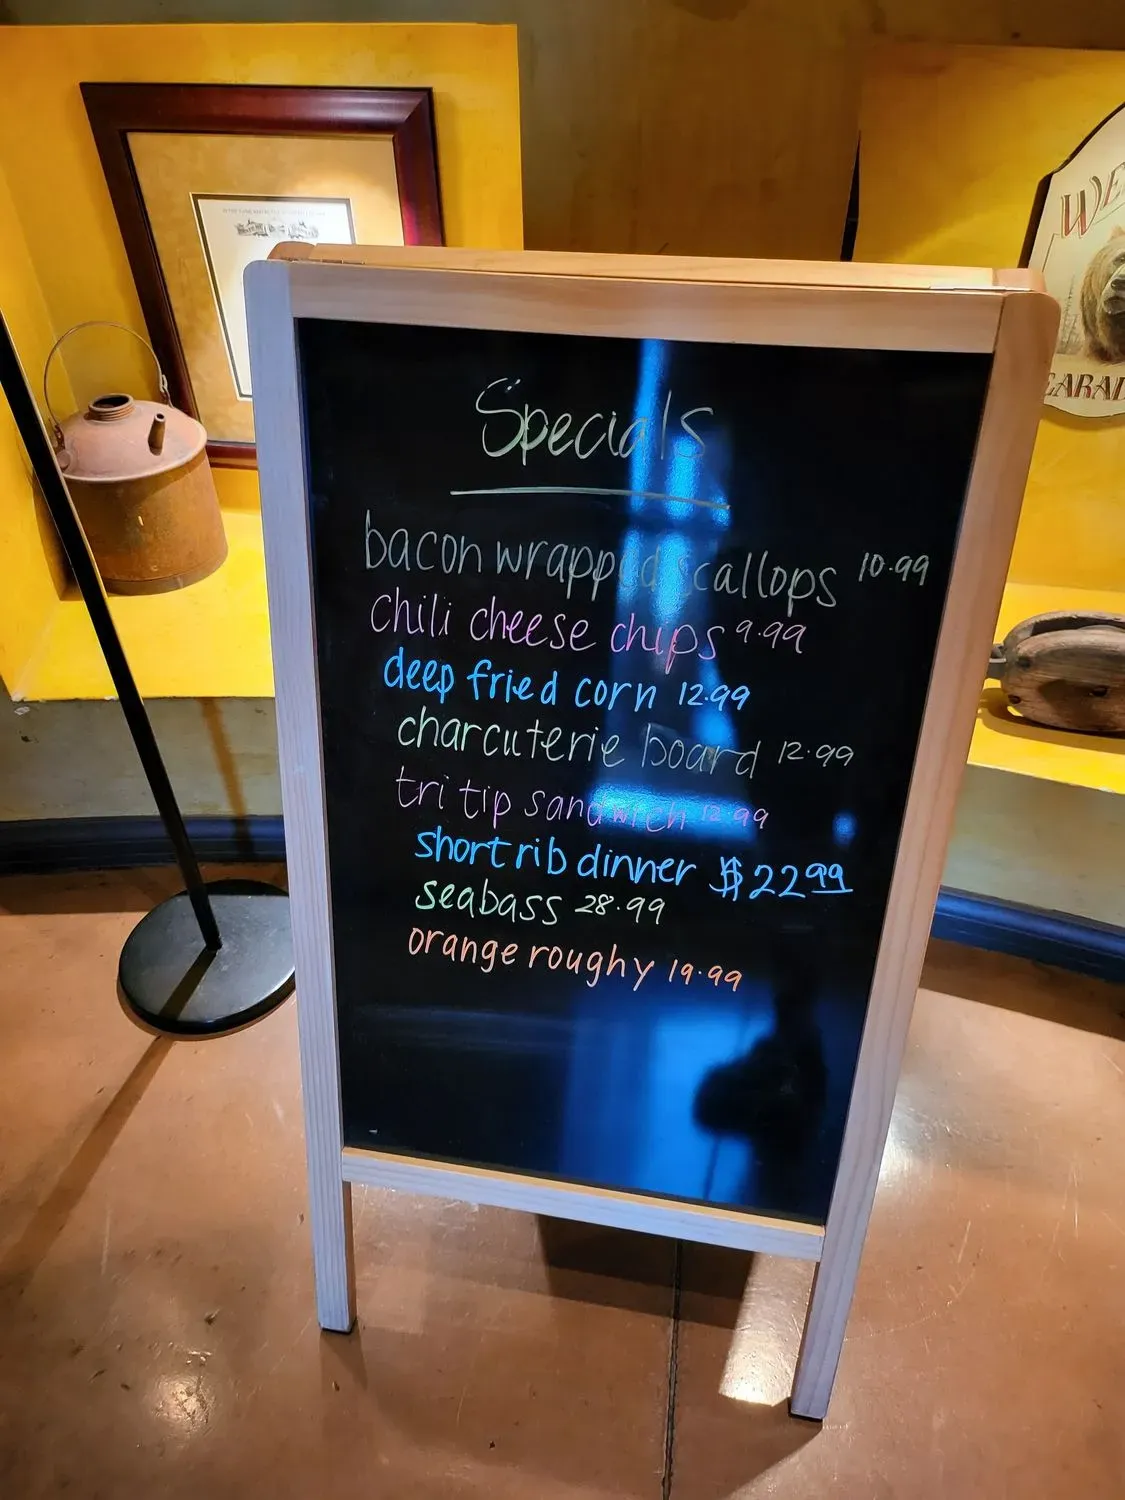 Specials
bacon wrapped scallops 10.99
chili cheese chips 9.99
deep fried corn 12.99
charcuterie board 12.99
tri tip sandwich 12.99
short rib dinner $22 99
seabass 28.99
orange roughy 19.99